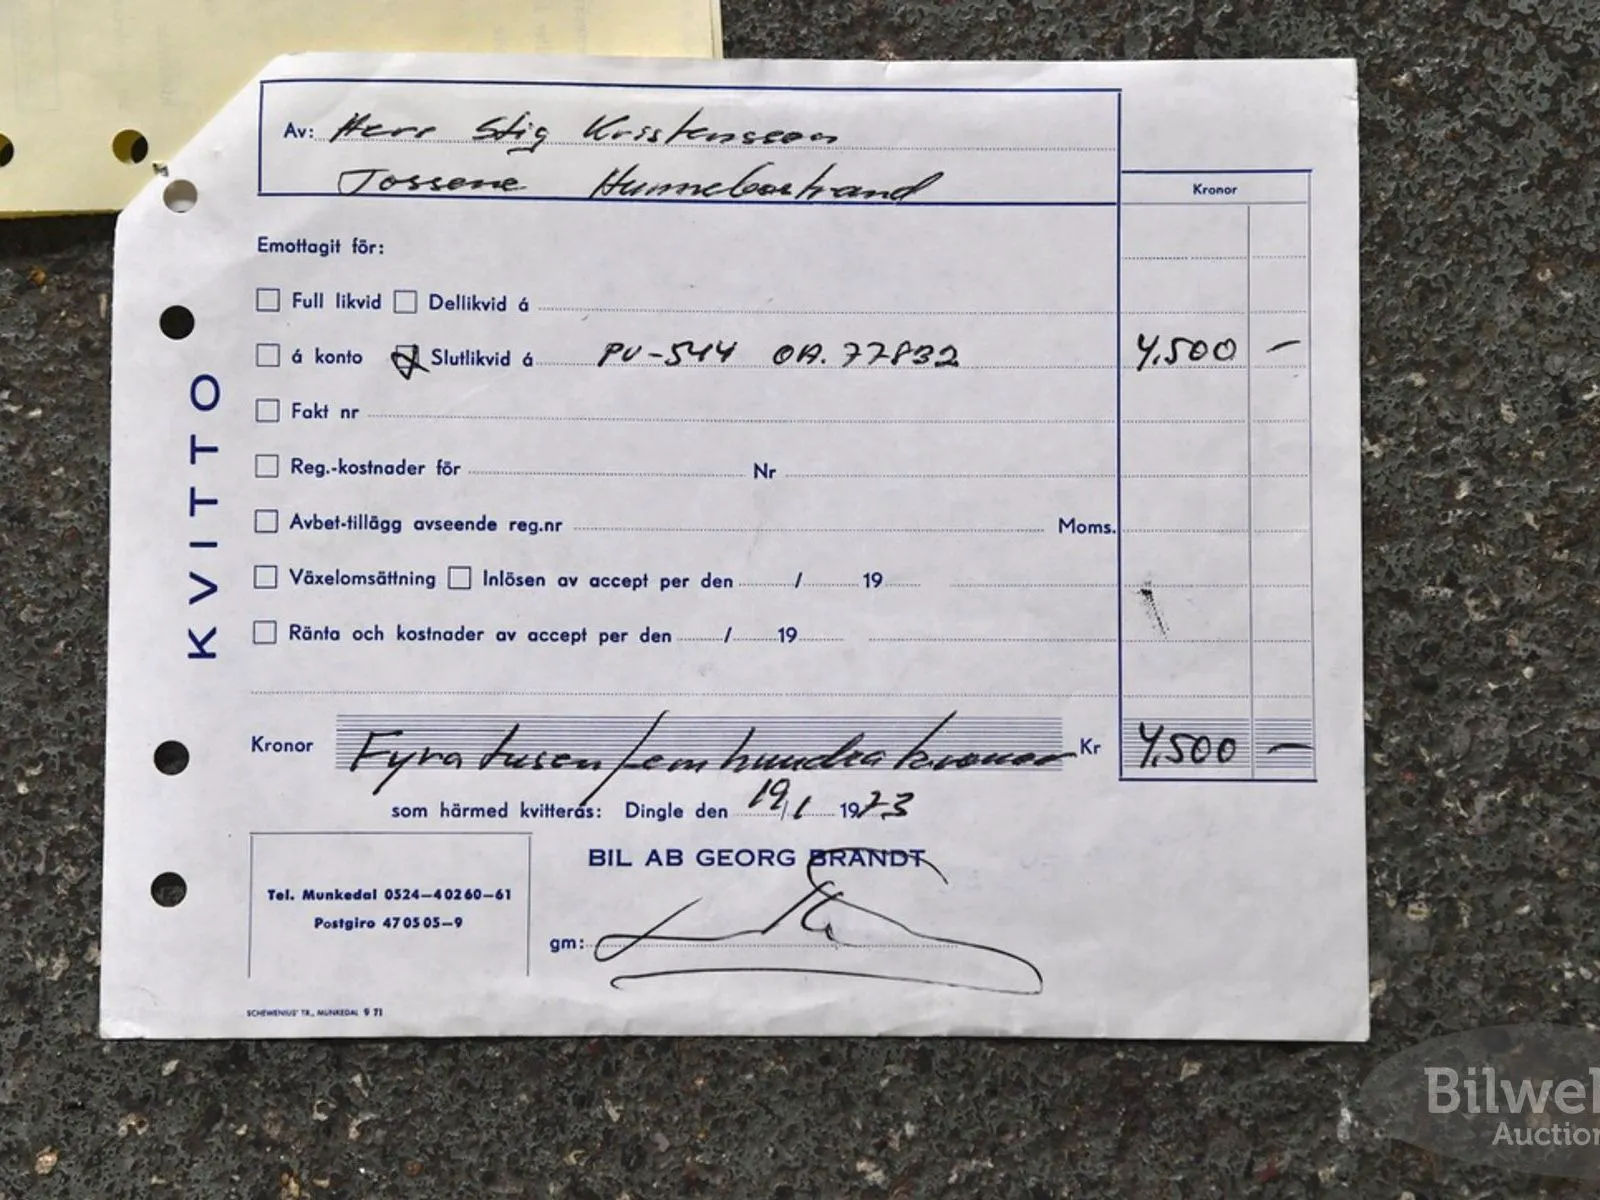 Av: Herr Stig Kristensson
Tossene Hunnebostrand
Kronor
Emottagit för:
Full likvid Dellikvid á
á konto Slutlikvid á PV-544 OA. 77832 4.500 —
Fakt nr
Reg.-kostnader för Nr
Avbet-tillägg avseende reg.nr Moms.
Växelomsättning Inlösen av accept per den / 19
Ränta och kostnader av accept per den / 19
KVITTO
Kronor Fyratusenfemhundra kronor Kr 4.500 —
som härmed kvitteras: Dingle den 19/1 1973
BIL AB GEORG BRANDT
Tel. Munkedal 0524—40260—61
Postgiro 47 05 05—9
gm:
SCHEWENIUS' TR., MUNKEDAL 9 71
Bilwe
Auction